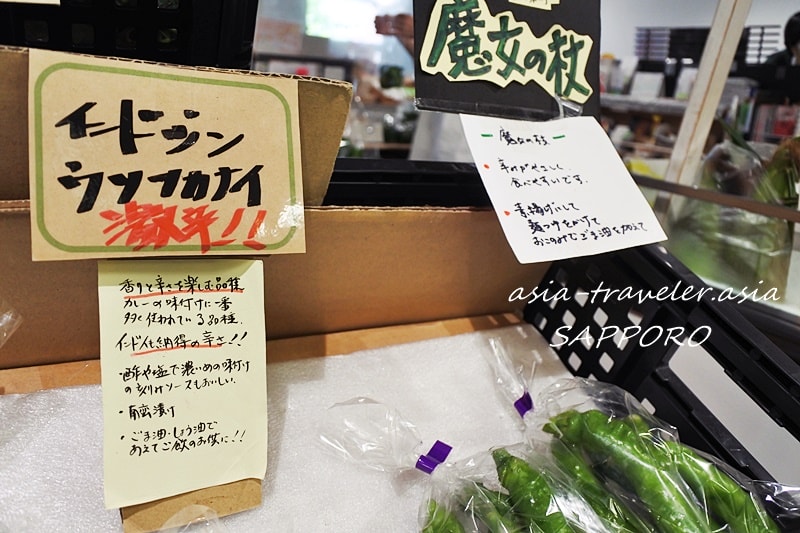 インドジン
ウソツカナイ
激辛!!
香りと辛さを楽しむ品種
カレーの味付けに一番
多く使われている品種。
インド人も納得の辛さ!!
・酢や塩で濃いめの味付け
の刻みソースもおいしい。
・南蛮漬け
・ごま油・しょう油で
あえてご飯のお供に!!
魔女の杖
魔女の杖
・辛みがやさしく
食べやすいです。
・素揚げにして
麺つゆをかけて
おこのみでごま油を加えて
asia-traveler.asia
SAPPORO